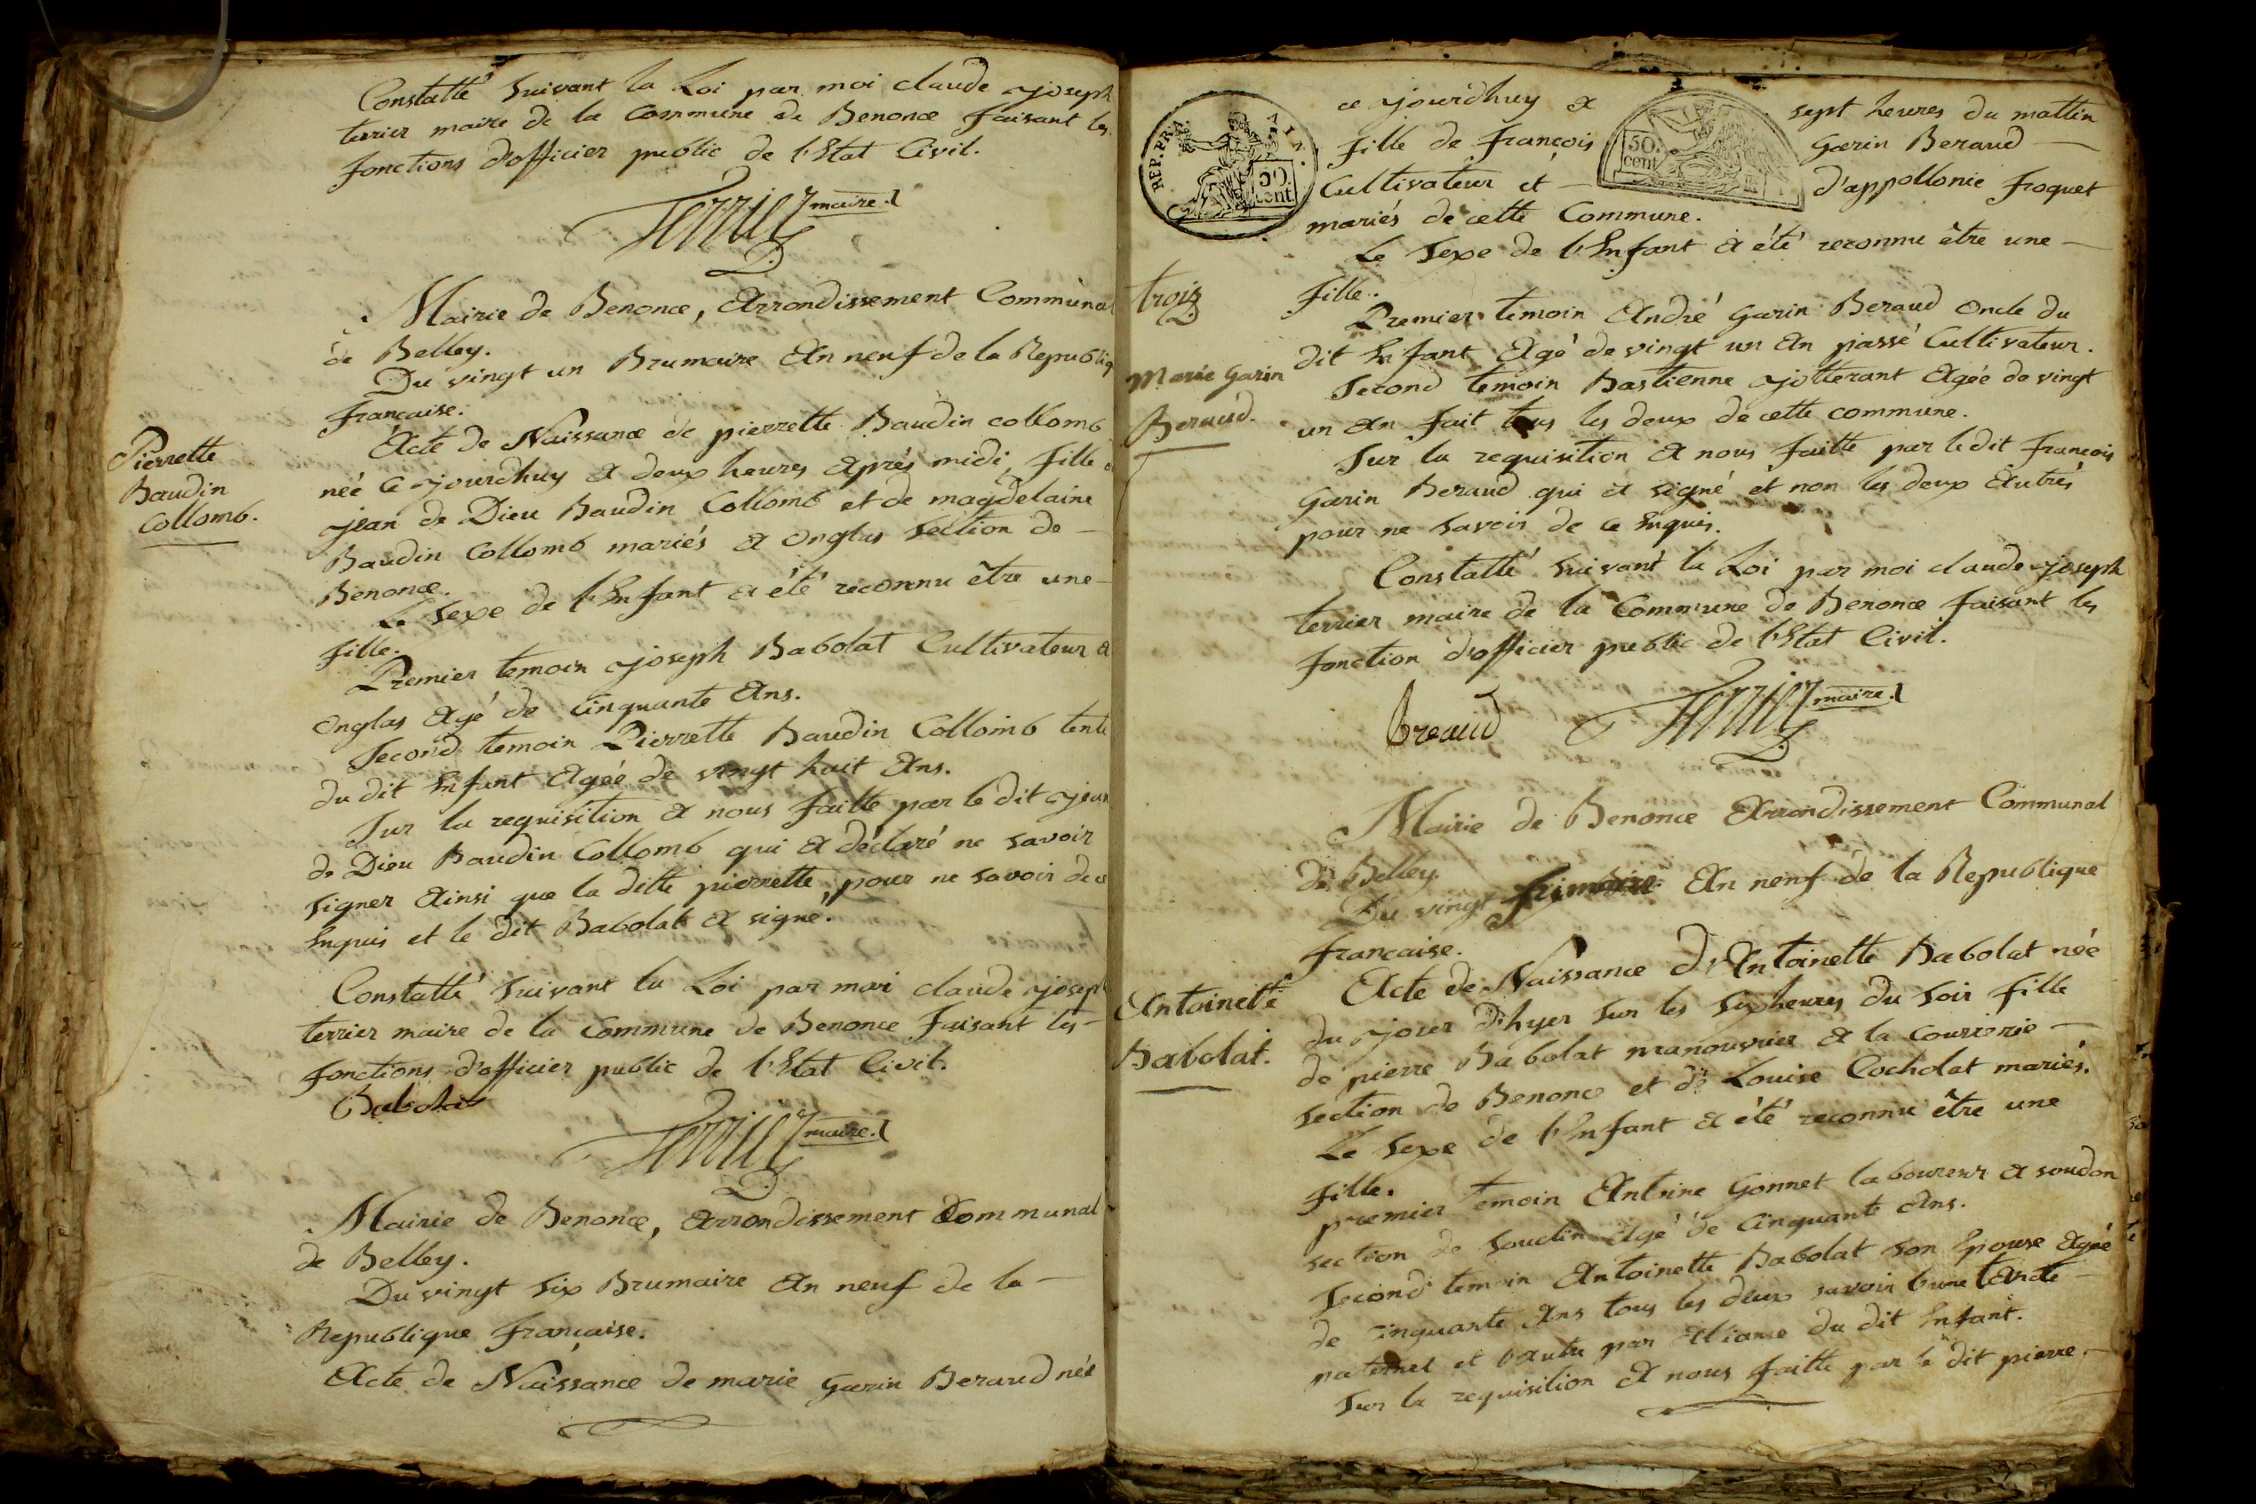 Constatté suivant la Loi par moi claude joseph
terrier maire de la Commune de Benonce faisant les
fonctions d'officier public de l'Etat Civil.
Terrier maire.
Mairie de Benonce, Arrondissement Communal
de Belley.
Du vingt un Brumaire An neuf de la Republiq
française.
Acte de Naissance de pierrette Baudin collomb
née ce jourdhuy a deux heures Après midi, fille d
jean de Dieu Baudin Collomb et de magdelaine
Baudin Collomb mariés a Onglas section de
Benonce.
Le sexe de l'Enfant a été reconnu être une
fille.
Premier temoin joseph Babolat Cultivateur a
Onglas Agé de Cinquante Ans.
Second temoin Pierrette Baudin Collomb tente
du dit Enfant Agée de vingt huit Ans.
Sur la requisition a nous faitte par le dit jean
de Dieu Baudin Collomb qui a déclaré ne savoir
signer Ainsi que la ditte pierrette, pour ne savoir de ce
Enquis et le dit Babolat a signé.
Constatté suivant la Loi par moi claude joseph
terrier maire de la Commune de Benonce faisant les
fonctions d'officier public de l'Etat Civil.
Babolat
Terrier maire.
Mairie de Benonce, Arrondissement Communal
de Belley.
Du vingt six Brumaire An neuf de la
Republique française.
Acte de Naissance de marie Garin Beraud née
Pierrette
Baudin
Collomb.
REP. FRA.
50
cent.
50.
cent
ce jourdhuy a sept heures du mattin
fille de françois Garin Beraud
Cultivateur et d'appollonie froquet
mariés de cette Commune.
Le sexe de l'Enfant a été reconnu être une
fille.
Premier temoin André Garin Beraud Oncle du
dit Enfant Agé de vingt un An passé Cultivateur.
Second temoin Bastienne jotterant Agée de vingt
un An fait tous les deux de cette commune.
Sur la requisition a nous faitte par le dit françois
Garin Beraud qui a signé et non les deux Autres
pour ne savoir de ce Enquis.
Constatté suivant la Loi par moi claude joseph
terrier maire de la Commune de Benonce faisant les
fonction d'officier public de l'Etat Civil.
breaud Terrier maire.
trois
Marie Garin
Beraud.
Mairie de Benonce Arrondissement Communal
de Belley
Du vingt frimaire An neuf de la Republique
française.
Acte de Naissance d'Antoinette Babolat née
du jour d'hyer sur les six heures du soir fille
de pierre Babolat manouvrier a la courrerie
section de Benonce et de Louise Cocholat mariés.
Le sexe de l'Enfant a été reconnu être une
fille.
premier temoin Antoine Gonnet laboureur a soudon
section de soudin Agé de Cinquante Ans.
second temoin Antoinette Babolat son Epouse Agée
de cinquante Ans tous les deux savoir l'une tante
paternel et l'autre par Aliance du dit Enfant.
Sur la requisition a nous faitte par le dit pierre
Antoinette
Babolat.